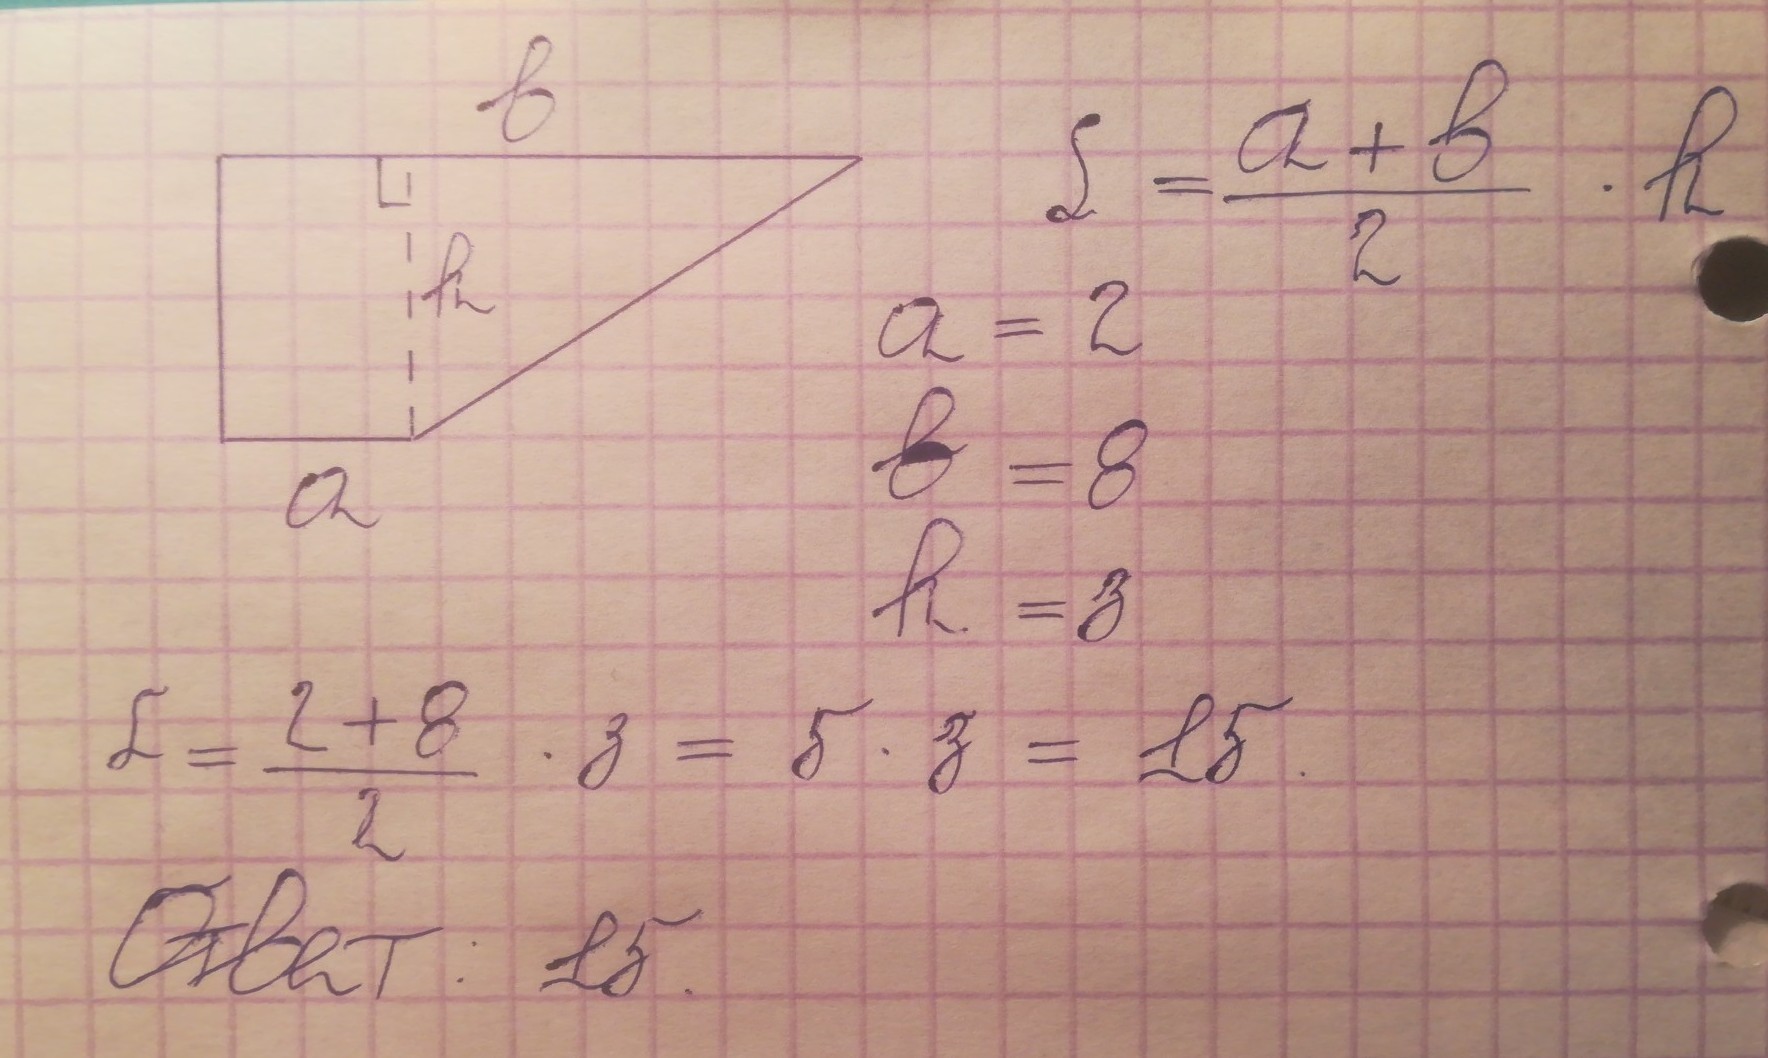 b
h
a
S = (a + b)/2 · h
a = 2
b = 8
h = 3
S = (2 + 8)/2 · 3 = 5 · 3 = 15.
Ответ: 15.